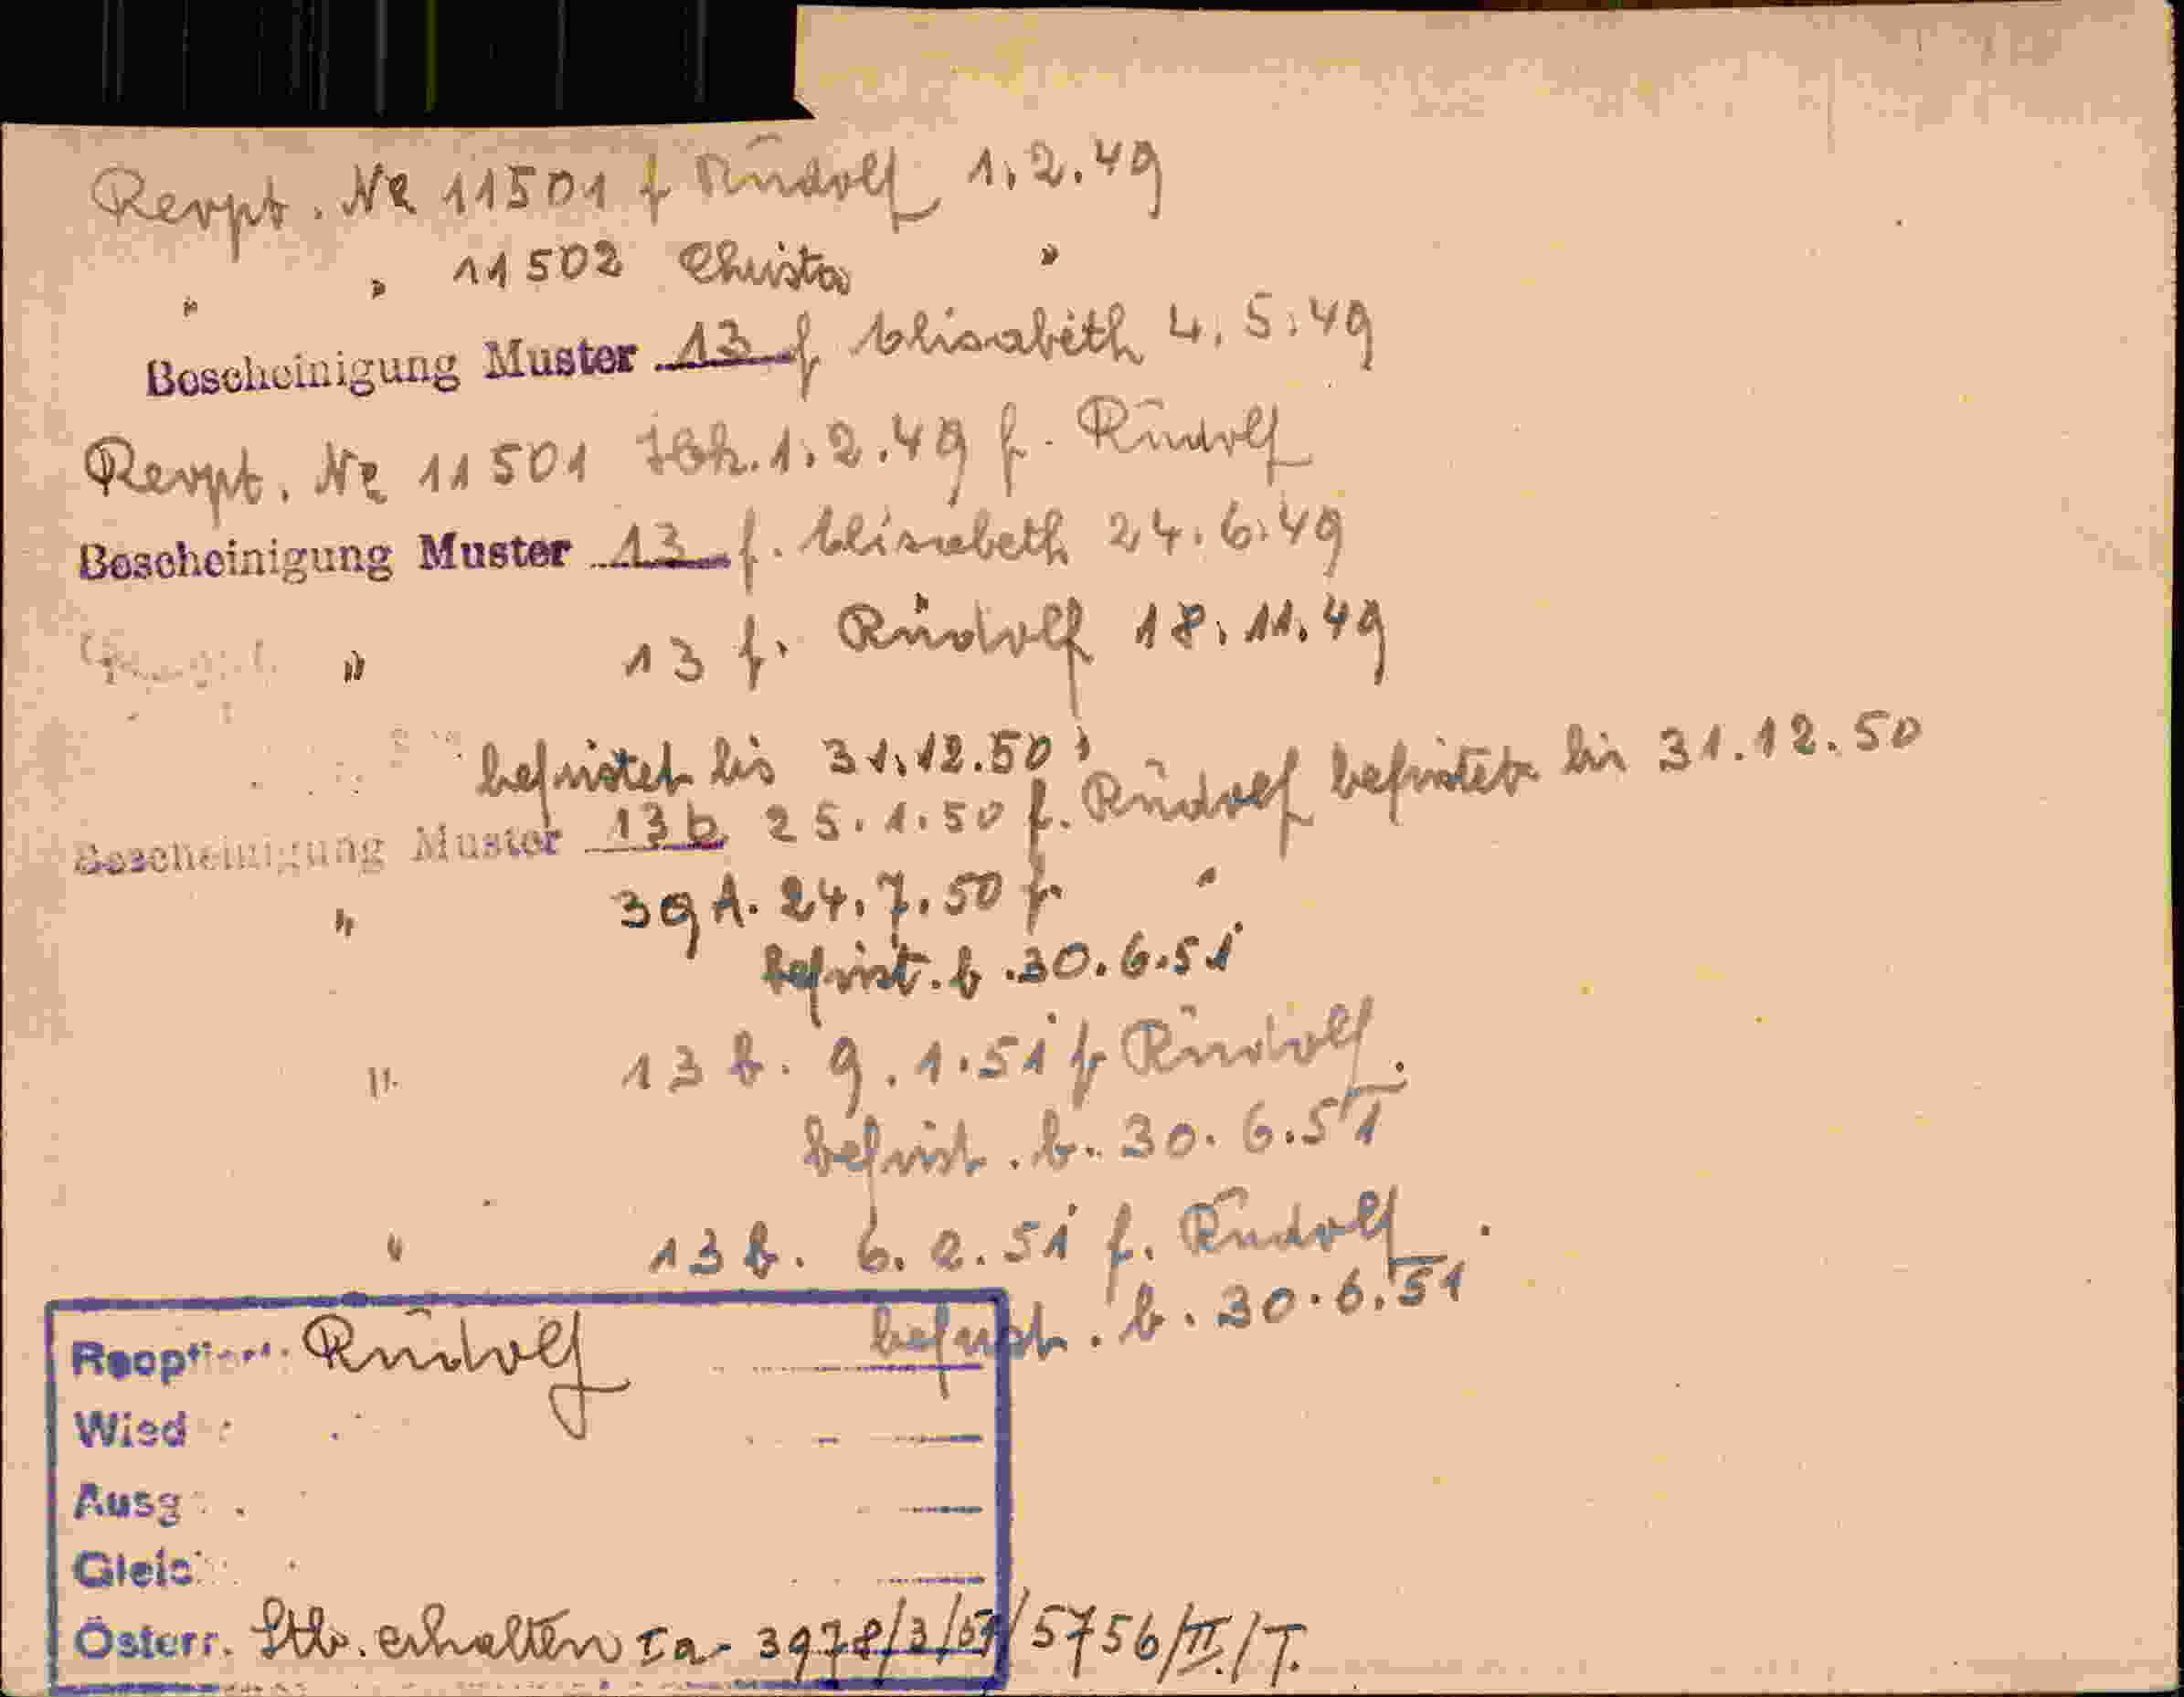 Rerpt. Nr 11501 f Rudolf 1.2.49
" " 11502 Christa "
Bescheinigung Muster 13 f Elisabeth 4.5.49
Rerpt. Nr 11501 1.2.49 f. Rudolf
Bescheinigung Muster 13 f. Elisabeth 24.6.49
" 13 f. Rudolf 18.11.49
befristet bis 31.12.50
Bescheinigung Muster 13b 25.1.50 f. Rudolf befristet bis 31.12.50
" 39A. 24.7.50 f "
befrist. b. 30.6.51
" 13b. 9.1.51 f Rudolf.
befrist. b. 30.6.51
" 13b. 6.2.51 f. Rudolf
befrist. b. 30.6.51
Rudolf
Wied
Ausg
Gleic
Österr. Stb. erhalten Ia- 3978/3/51/5756/II./T.